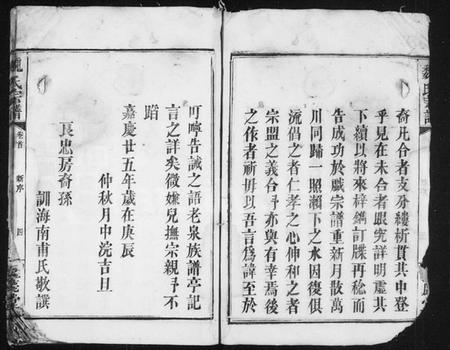 奇凡合者支分縷析貫其中登
乎見在未合者眼究詳明虛其
下續以將來梓鐫訂牒再稔而
告成功於戲宗譜重新月散萬
川同歸一照瀨下之水因復俱
流倡之者仁孝之心伸和之者
宗盟之義合予亦與有幸焉後
之作者祈毋以吾言爲諱至於
叮嚀告誡之語老泉族譜亭記
言之詳矣微嫌兒撫宗親予不
蹈
嘉慶廿五年歲在庚辰
仲秋月中浣吉旦
良忠房裔孫
訓海南甫氏敬譔
魏氏宗譜
卷首
新序
四